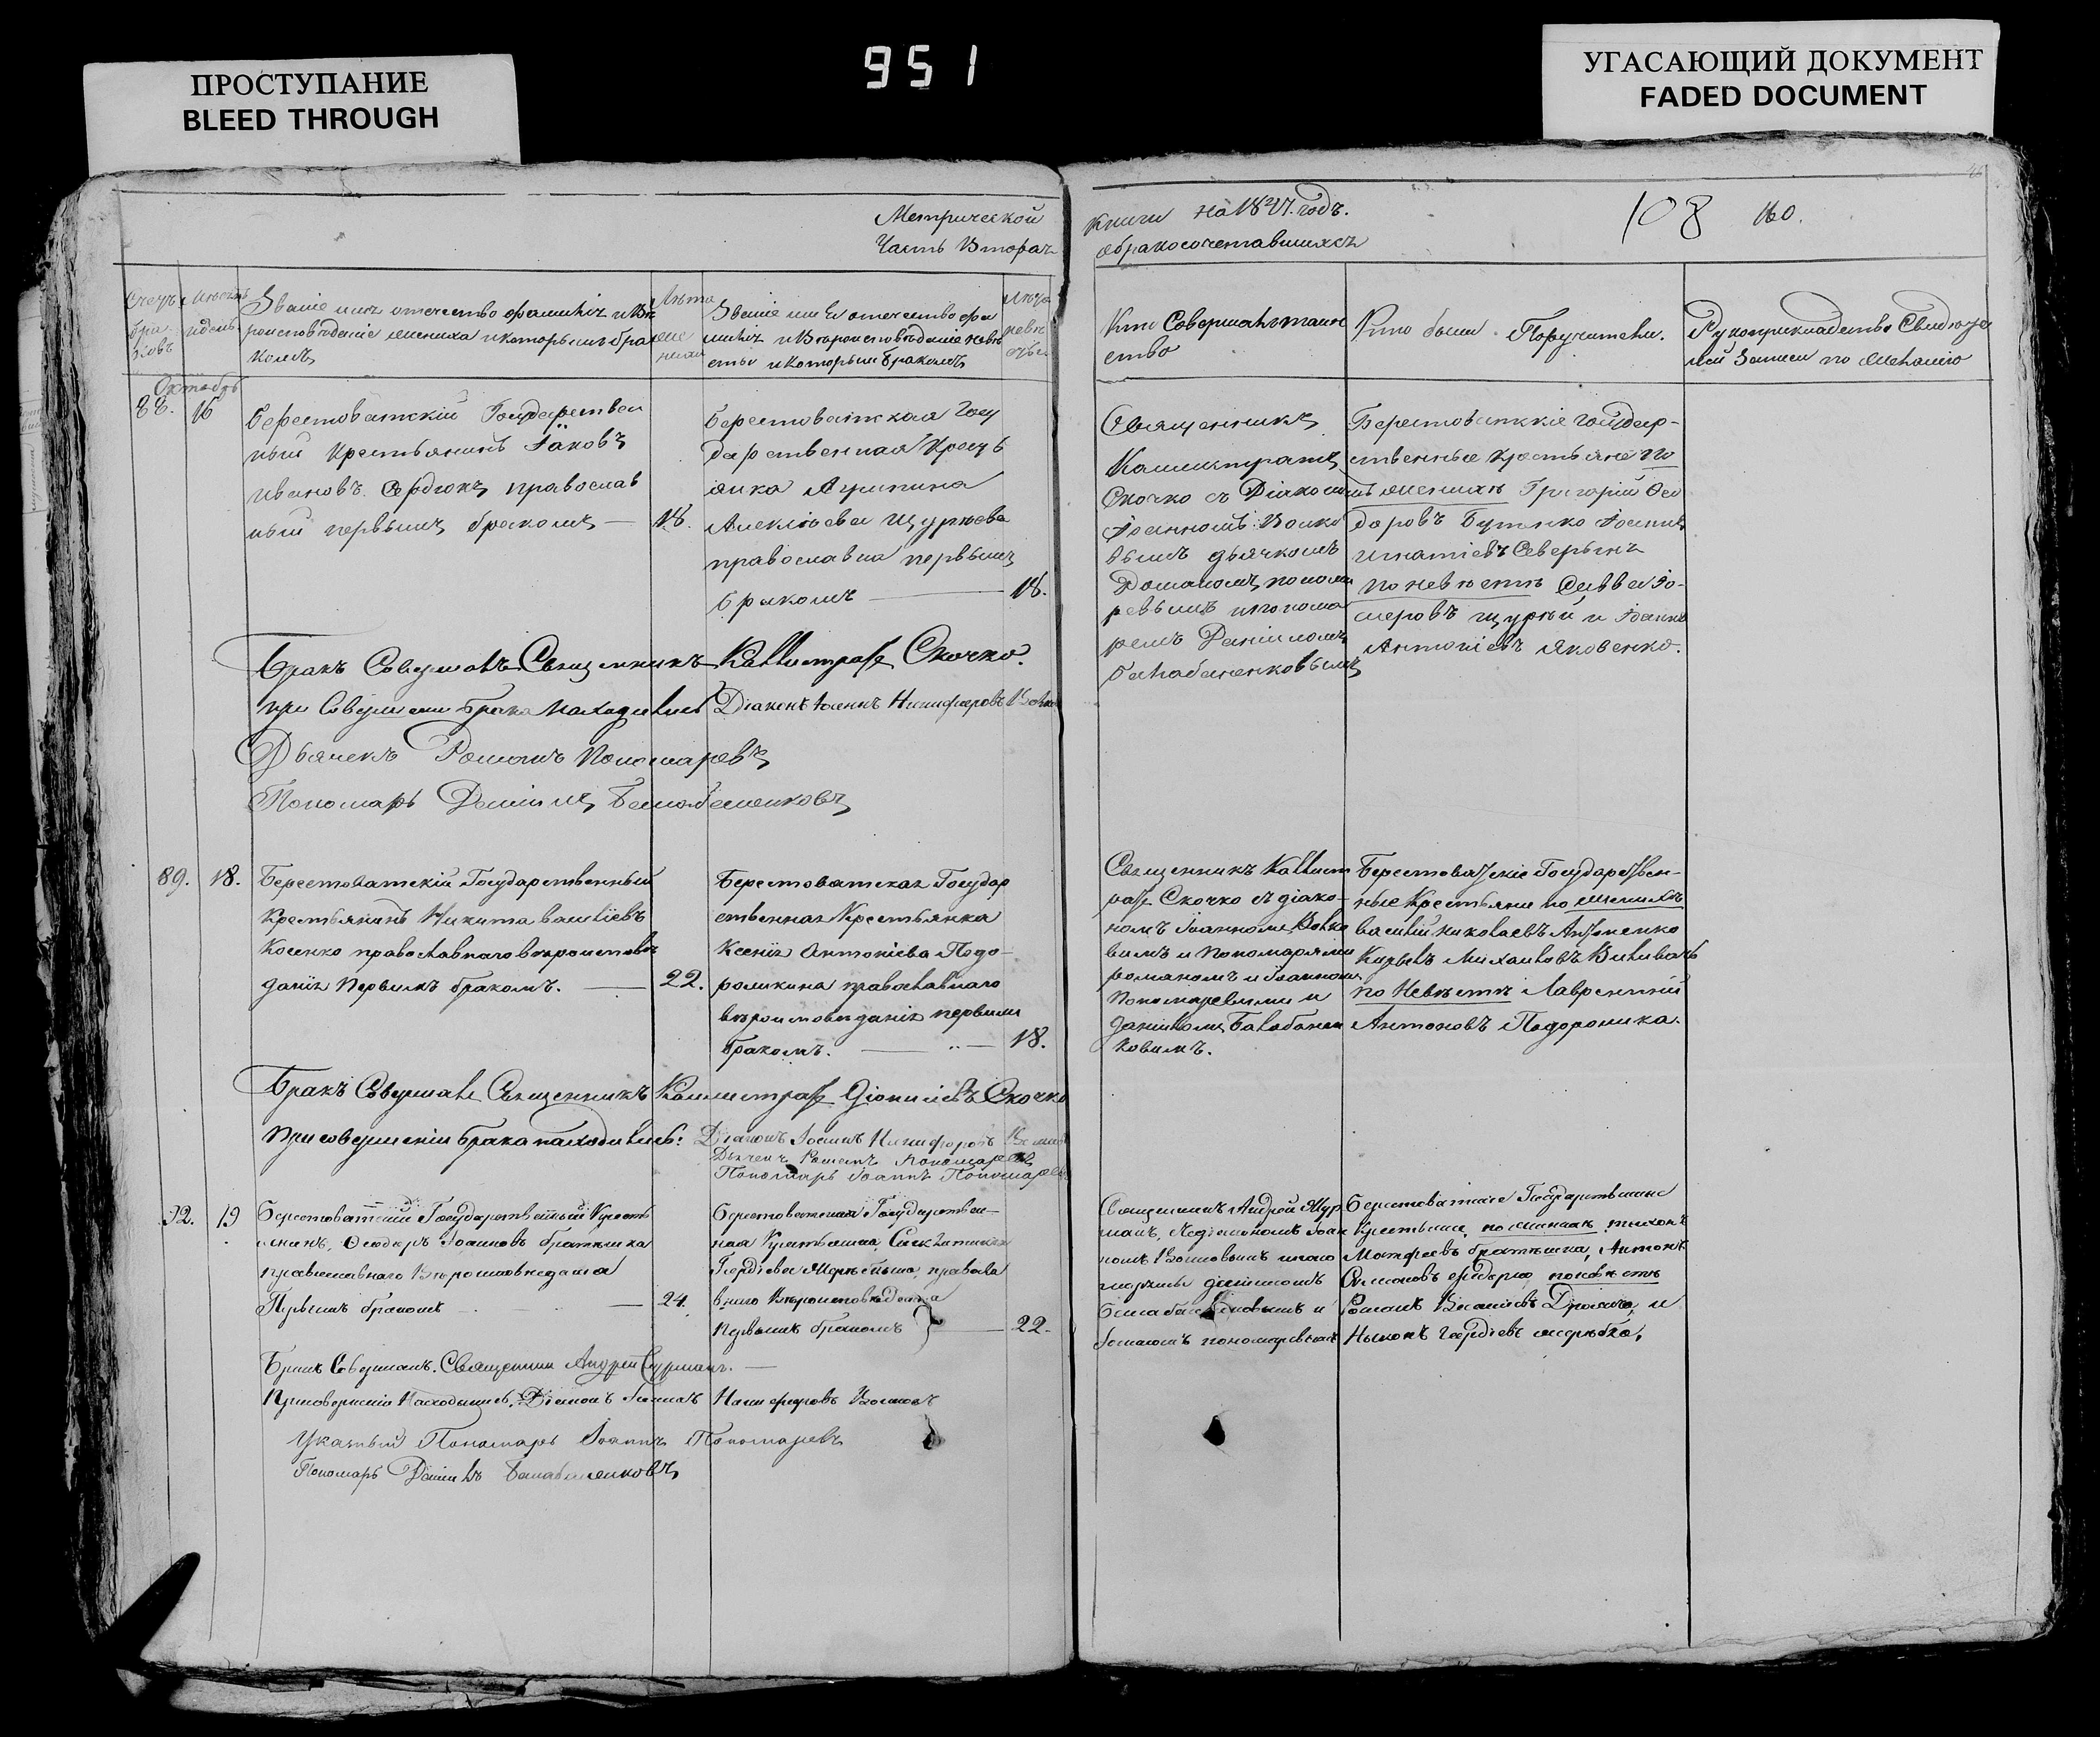 ПРОСТУПАНИЕ
BLEED THROUGH
951
УГАСАЮЩИЙ ДОКУМЕНТ
FADED DOCUMENT
Метрической
Часть Вторая
книги на 1847. годъ.
о бракосочетавшихся
108
160.
Счетъ браковъ
Званіе имя отечество фамилія и вѣ
роисповѣданіе жениха и которымъ бра
комъ
Лѣта
Званіе имя отечество фа
милія и вѣроисповѣданіе невѣ
сты и которымъ бракомъ
Лѣта
невѣ
сты
Кто Совершалъ таин
ство
Кто были Поручители.
Рукоприкладство Свидѣте
лей Записи по желанію
Октябрь
88. 16
Берестоватскій Государствен
ный крестьянинъ Іаковъ
Ивановъ Сердюкъ православ
ный первымъ бракомъ — 18.
Берестоватская Госу
дарственная Кресть
янка Агрипина
Алексѣева Щурѣева
православна первымъ
бракомъ — 18.
Священникъ
Каллистратъ
Скочко съ Діакономъ
Іоанномъ Волко
вымъ дьячкомъ
Романомъ понома
ревымъ и понома
ремъ Даніиломъ
Балабаненковымъ
Берестоватскіе государ-
ственные крестьяне по
женихѣ Григорій Фео
доровъ Бутенко Іоаннъ
Игнатіевъ Северинъ
по невѣстѣ Савва
Щурѣй и Іоаннъ
Антоніевъ Яковенко.
Бракъ Совершалъ Священникъ Каллистратъ Скочко.
при Совершеніи брака находились Діаконъ Іоаннъ Никифоровъ Волковъ
Дьячекъ Романъ Пономаревъ
Пономарь Даніилъ Балабаненковъ
89. 18.
Берестоватскій Государственный
Крестьянинъ Никита Василіевъ
Косенко православнаго вѣроисповѣ
данія первымъ бракомъ. — 22.
Берестоватская Государ
ственная Крестьянка
Ксенія Антоніева Подо-
рожкина православнаго
вѣроисповѣданія первымъ
бракомъ. — 18.
Священникъ Каллист
ратъ Скочко съ діако-
номъ Іоанномъ Волко
вимъ и Пономарями
романомъ и Іоанномъ
Пономаревими и
даніиломъ Балабанен
ковимъ.
Берестоватскіе Государствен-
ные Крестьяне по женихѣ
василій николаевъ Антоненко
Кирилъ Михаиловъ
по Невѣстѣ Лаврентій
Антоновъ Подорожка.
Бракъ Совершалъ Священникъ Каллистратъ Діонисіевъ Скочко
При совершеніи брака находились: Діаконъ Іоаннъ Никифоровъ
Дьячекъ Романъ Пономаревъ
Пономарь Іоаннъ Пономаревъ
92. 19
Берестоватскій Государственный Кресть
янинъ, Феодоръ Іоанновъ братышка
православнаго Вѣроисповѣданія
Первымъ бракомъ — 24.
Берестоватская Государствен-
ная Крестьянка
Гордіева православ
внаго Вѣроисповѣданія
Первымъ бракомъ — 22.
Священникъ Андрей
съ діакономъ Іоан
номъ Волковымъ
даніиломъ
и
пономаревымъ
Берестоватскіе Государственные
Крестьяне, по женихѣ тихонъ
Матфеевъ братышка, Антонъ
по невѣстѣ
Романъ Василіевъ и
Никонъ Гордіевъ
Бракъ Совершалъ. Священникъ Андрей
При совершеніи Находились, Діаконъ Іоаннъ Никифоровъ Волковъ
Указный Пономарь Іоаннъ Пономаревъ
Пономарь Даніилъ Балабаненковъ